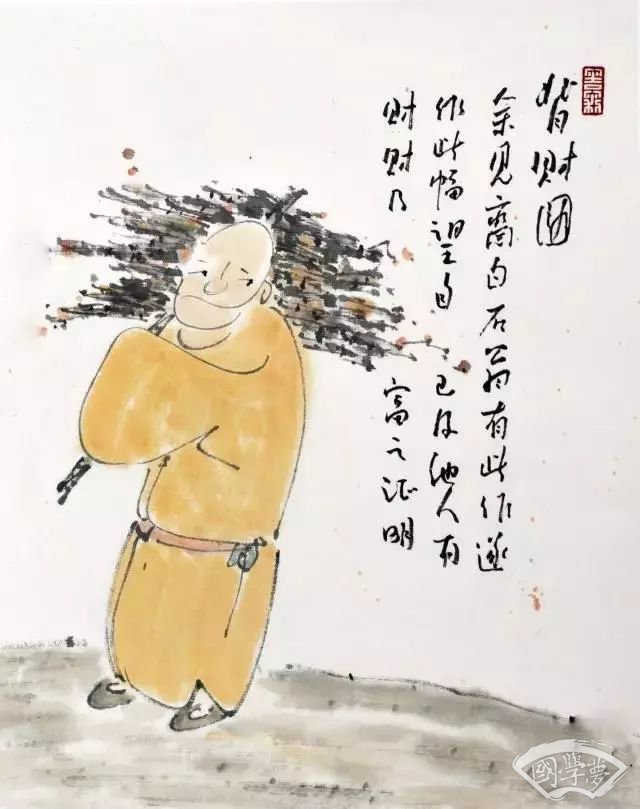 背财图
余见齊白石翁有此作遂
作此幅望自己及他人有
财财乃富之证明
國學夢